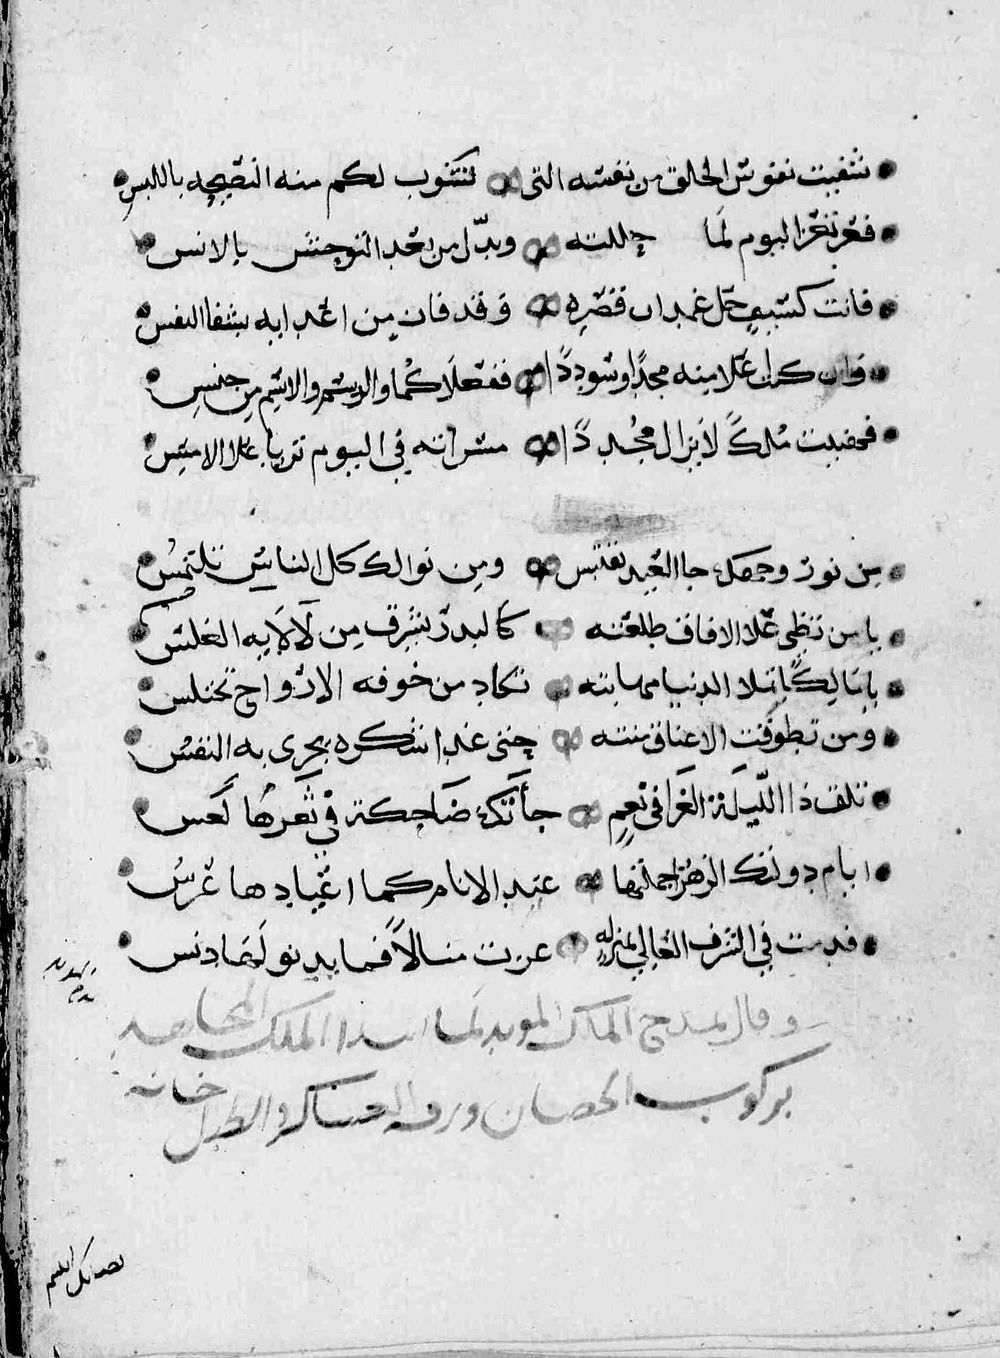 شفيت نفوس الخلق من نفسه التى لتكتوب لكم منه النصيحه باللبس
فعز نغز اليوم لما حللته وبدّل من بعد التوحش بالانس
فانت كسيف حل غمدان قصره وقد فاز من اعدايه بشفا النفس
وان كان علا منه مجدا وسوددًا ففعلاكما والاسم والاسم من جنس
فحييت ملكًا لا يزال مجددًا مسراته في اليوم تربا علا الامس
من نور وجهك جا العيد يقتبس ومن نوالك كل الناس تلتمس
يا من تظى علا الافاق طلعته كالبدر يشرق من لالايه الغلس
يا مالكًا تملا الدنيا مهابته تكاد من خوفه الارواح تختلس
ومن تطوقت الاعناق منته حتى غدا شكره يجرى به النفس
تلق ذا الليلة الغرا فى نعم جأتك ضاحكة في ثغرها لعس
ايام دولتك الزهر اجملتها عند الانام كما اعيادها عرس
قدمت في الشرف العالي بمنزله عزت منالاً فما يدنو لها دنس
وقال يمدح الملك المويد لما اسدا الملك المجاهد
بركوب الحصان ورفه العساكر والطبل خانه